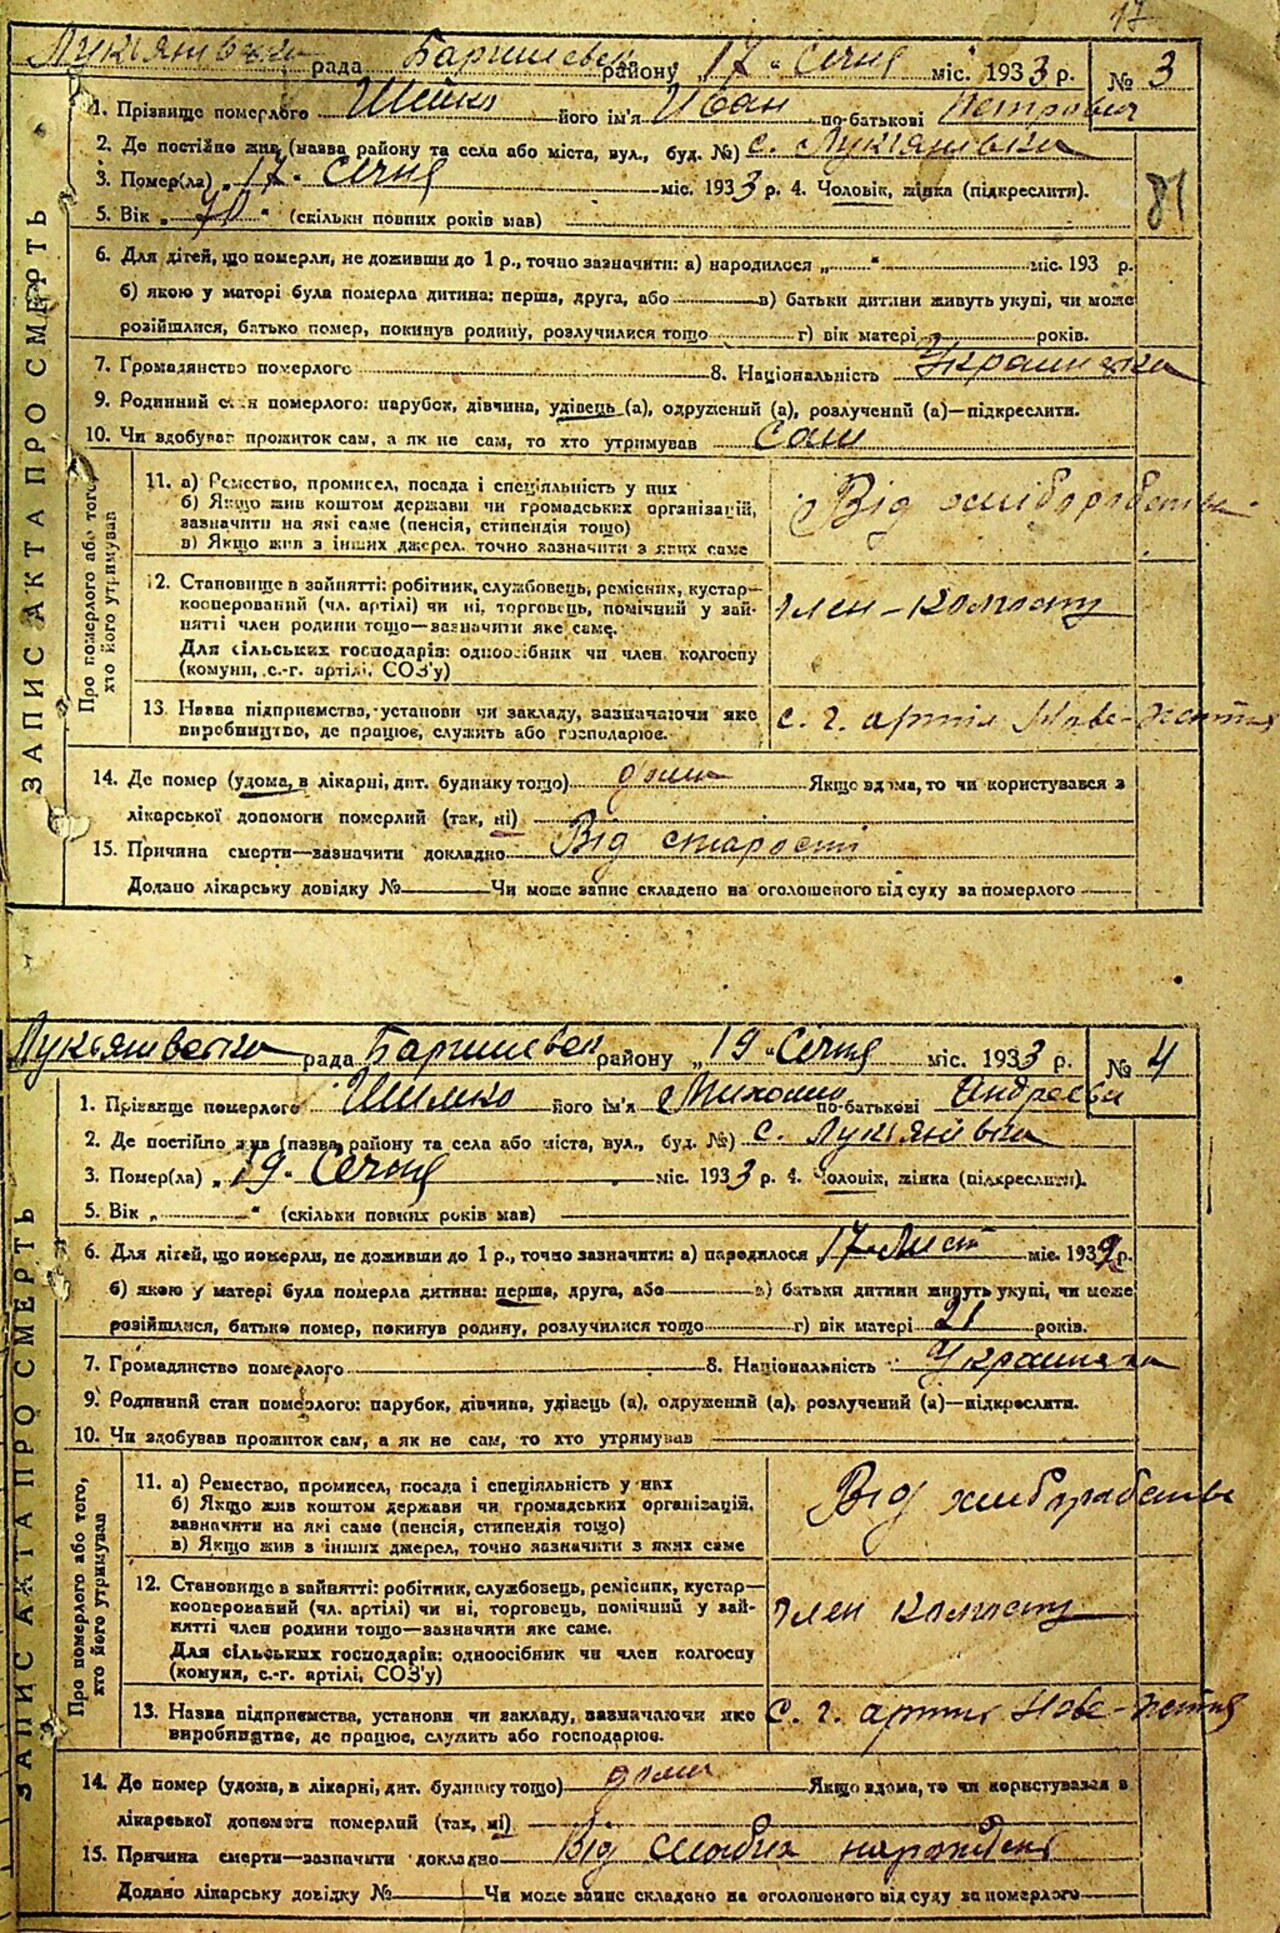 17
Лукьянівська рада Баришевськ району „17“ Січня міс. 1933 р. № 3
1. Прізвище померлого Шейко його ім'я Иван по-батькові Петрович
2. Де постійно жив (назва району та села або міста, вул., буд. №) с. Лукіянівка
3. Помер(ла) „17“ Січня міс. 1933 р. 4. Чоловік, жінка (підкреслити).
81
5. Вік „70“ (скільки повних років мав)
6. Для дітей, що померли, не доживши до 1 р., точно зазначити: а) народилося „ “ міс. 193 р.
б) якою у матері була померла дитина: перша, друга, або в) батьки дитини живуть укупі, чи може
розійшлися, батько помер, покинув родину, розлучилися тощо г) вік матері років.
7. Громадянство померлого 8. Національність Украинка
9. Родинний стан померлого: парубок, дівчина, удівець (а), одружений (а), розлучений (а)—підкреслити.
10. Чи здобував прожиток сам, а як не сам, то хто утримував Сам
ЗАПИС АКТА ПРО СМЕРТЬ
Про померлого або того, хто його утримував
11. а) Ремество, промисел, посада і спеціяльність у них
б) Якщо жив коштом держави чи громадських організацій,
зазначити на які саме (пенсія, стипендія тощо)
в) Якщо жив з інших джерел, точно зазначити з яких саме
Від хліборобства
12. Становище в зайнятті: робітник, службовець, ремісник, кустар—
кооперований (чл. артілі) чи ні, торговець, помічний у зай-
нятті член родини тощо—зазначити яке саме.
Для сільських господарів: одноосібник чи член колгоспу
(комуни, с.-г. артілі, СОЗ'у)
член-колгоспу
13. Назва підприємства, установи чи закладу, зазначаючи яке
виробництво, де працює, служить або господарює.
с. г. артіл Нове-життя
14. Де помер (удома, в лікарні, дит. будинку тощо) дома Якщо вдома, то чи користувався з
лікарської допомоги померлий (так, ні)
15. Причина смерти—зазначити докладно Від старости
Додано лікарську довідку № Чи може запис складено на оголошеного від суду за померлого
Лукьянивська рада Баришевськ району „19“ Січня міс. 1933 р. № 4
1. Прізвище померлого його ім'я Михайло по-батькові Андреєвич
2. Де постійно жив (назва району та села або міста, вул., буд. №) с. Лукіянівка
3. Помер(ла) „19“ Січня міс. 1933 р. 4. Чоловік, жінка (підкреслити).
5. Вік „ “ (скільки повних років мав)
6. Для дітей, що померли, не доживши до 1 р., точно зазначити: а) народилося 17 Лист міс. 1932 р.
б) якою у матері була померла дитина: перша, друга, або в) батьки дитини живуть укупі, чи може
розійшлися, батько помер, покинув родину, розлучилися тощо г) вік матері 21 років.
7. Громадянство померлого 8. Національність
9. Родинний стан померлого: парубок, дівчина, удівець (а), одружений (а), розлучений (а)—підкреслити.
10. Чи здобував прожиток сам, а як не сам, то хто утримував
ЗАПИС АКТА ПРО СМЕРТЬ
Про померлого або того, хто його утримував
11. а) Ремество, промисел, посада і спеціяльність у них
б) Якщо жив коштом держави чи громадських організацій,
зазначити на які саме (пенсія, стипендія тощо)
в) Якщо жив з інших джерел, точно зазначити з яких саме
Від хліборобства
12. Становище в зайнятті: робітник, службовець, ремісник, кустар—
кооперований (чл. артілі) чи ні, торговець, помічний у зай-
нятті член родини тощо—зазначити яке саме.
Для сільських господарів: одноосібник чи член колгоспу
(комуни, с.-г. артілі, СОЗ'у)
член колгоспу
13. Назва підприємства, установи чи закладу, зазначаючи яке
виробництво, де працює, служить або господарює.
с. г. артіл Нове-життя
14. Де помер (удома, в лікарні, дит. будинку тощо) дома Якщо вдома, то чи користувався з
лікарської допомоги померлий (так, ні)
15. Причина смерти—зазначити докладно Від слабих нарождені
Додано лікарську довідку № Чи може запис складено на оголошеного від суду за померлого